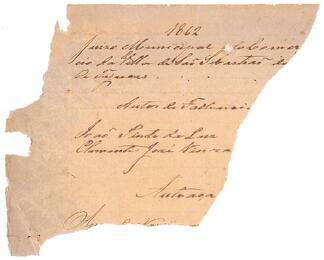 1862
Juizo Municipal do Comer
cio da Villa de São Sebastião da
Autos de Fallencia
João Pinto da Luz
Clemente José
Autuação